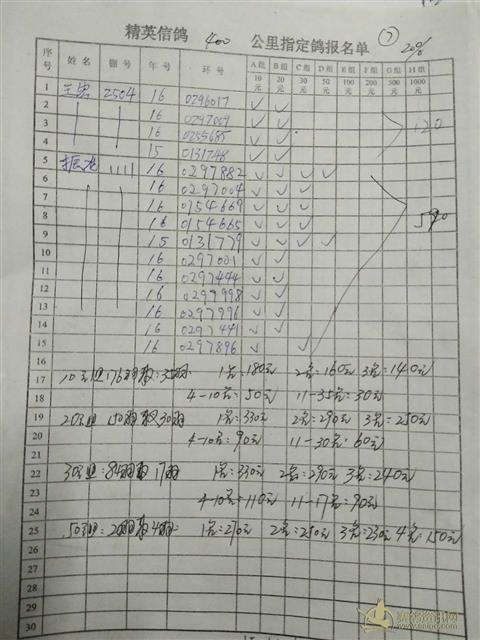 精英信鸽 400 公里指定鸽报名单 ⑦ 20%
序号 姓名 棚号 年号 环号 A组10元 B组20元 C组30元 D组50元 E组100元 F组200元 G组500元 H组1000元
1 2504 16 0296017 ✓ ✓
2 16 0297009 ✓ ✓
3 16 0255685 ✓ ✓ 120
4 15 0131748 ✓ ✓
5 振龙 1111 16 0297882 ✓ ✓ ✓ ✓
6 16 0297004 ✓ ✓ ✓
7 16 0154669 ✓ ✓ ✓
8 16 0154665 ✓ ✓ ✓
9 15 0131779 ✓ ✓ ✓ ✓
10 16 0297001 ✓ ✓
11 16 0297444 ✓ ✓
12 16 0299998 ✓ ✓
13 16 0297996 ✓ ✓
14 16 0297441 ✓ ✓
15 16 0297896 ✓ ✓
16
17 1名=180元 2名=160元 3名=140元
18 4-10名=50元 11-35名=30元
19 1名=330元 2名=290元 3名=250元
20 4-10名=90元 11-30名=60元
21
22 1名=330元 2名=290元 3名=240元
23 4-10名=110元 11-17名=90元
24
25 1名=270元 2名=250元 3名=230元 4名=150元
26
27
28
29
30